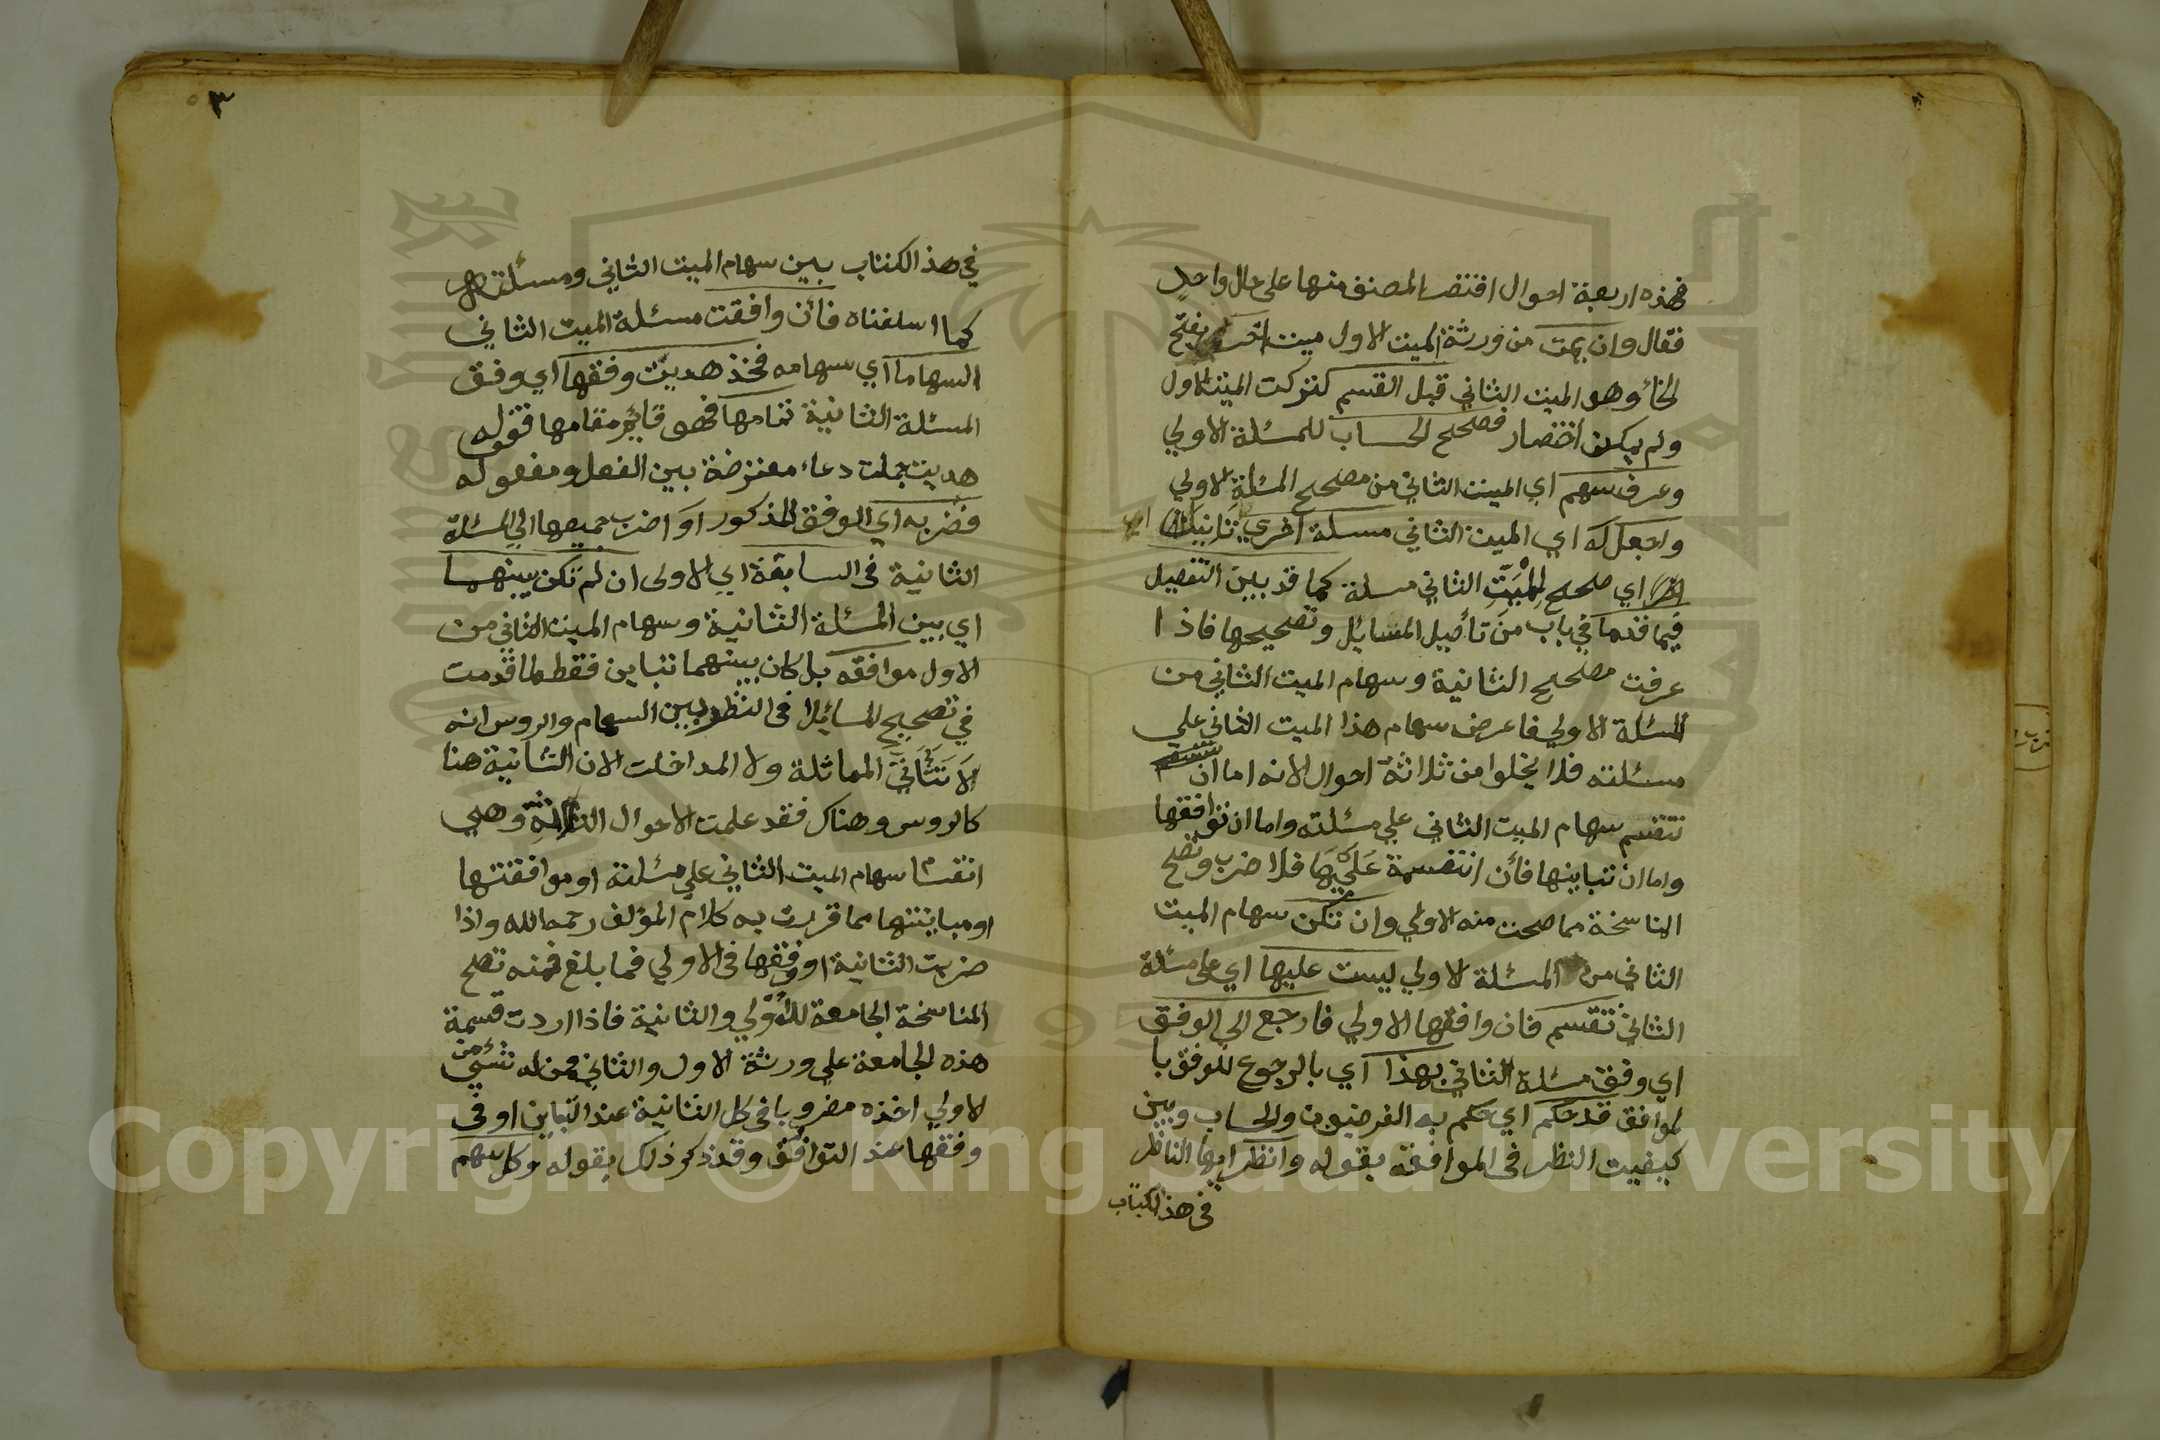 فهذه اربعة احوال اقتصر المصنف منها على حال واحد
فقال وان يمت من ورثة الميت الاول ميت اخر بفتح
الخاء وهو الميت الثاني قبل القسم لتركت الميت الاول
ولم يمكن اختصار فصحح الحساب للمسئلة الاولي
وعرف سهم اي الميت الثاني من مصحح المسئلة الاولي
واجعل له اي الميت الثاني مسئلة اخري ثانية
اي صحح للميت الثاني مسئلة كما قد بين التفصيل
فيما قدما في باب من تأصيل المسايل وتصحيحها فاذا
عرفت مصحح الثانية وسهام الميت الثاني من
المسئلة الاولي فاعرض سهام هذا الميت الثاني علي
مسئلته فلا يخلوا من ثلاثة احوال لانه اما ان
تنقسم سهام الميت الثاني علي مسئلته واما ان توافقها
واما ان تباينها فأن انتقسمة عليها فلا ضرب وتصح
المناسخة مما صحت منه الاولي وان تكن سهام الميت
الثاني من المسئلة الاولي ليست عليها اي على مسئلة
الثاني تنقسم فان وافقها الاولي فارجع الي الوفق
اي وفق مسئلة الثاني بهذا اي بالرجوع للوفق با
لموافق قد حكم اي حكم به الفرضيون والحساب وبين
كيفيت النظر في الموافقه بقوله وانظر ايها الناظر
في هذا الكتاب
٣
في هذا الكتاب بين سهام الميت الثاني ومسئلته
كما اسلفناه فأن وافقت مسئلة الميت الثاني
السهاما اي سهامه فخذ هديت وفقها اي وفق
المسئلة الثانية تمامها فهو قائم مقامها فقوله
هديت جملت دعاء معترضة بين الفعل ومفعوله
فضربه اي الوفق المذكور او اضرب جميعها اي المسئلة
الثانية في السابقة اي الاولى ان لم تكن بينهما
اي بين المسئلة الثانية وسهام الميت الثاني من
الاول موافقه بل كان بينهما تباين فقط لما قدمت
في تصحيح المسائل في النظر بين السهام والروس انه
لا تتأتي المماثلة ولا المداخلت لان الثانية هنا
كالروس وهناك فقد علمت الاحوال الثلاثة وهي
انقسام سهام الميت الثاني علي مسئلته او موافقتها
او مباينتها مما قررت به كلام المؤلف رحمه الله واذا
ضربت الثانية او وفقها في الاولي فما بلغ فمنه تصح
المناسخة الجامعة للأولي والثانية فاذا اردت قسمة
هذه الجامعة علي ورثة الاول والثاني فمن له شئي من
الاولي اخذه مضروبا في كل الثانية عند التباين او في
وفقها عند التوافق وقد ذكر ذلك بقوله وكل سهم
Copyright © King Saud University